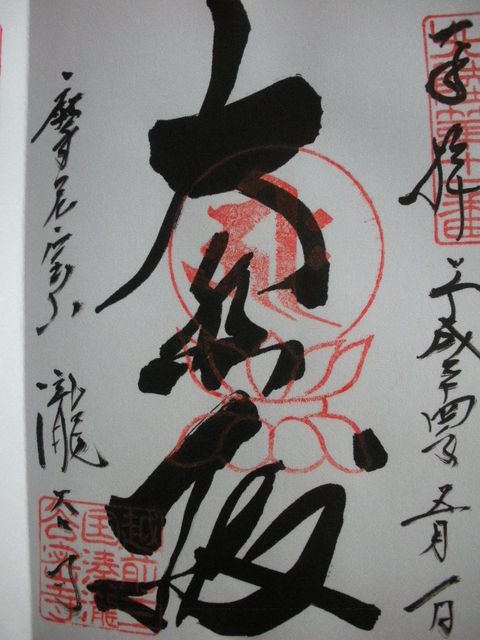 奉拝
平成二十四年五月一日
大悲殿
摩尼宝山 瀧谷寺
越前三
国湊瀧
谷寺